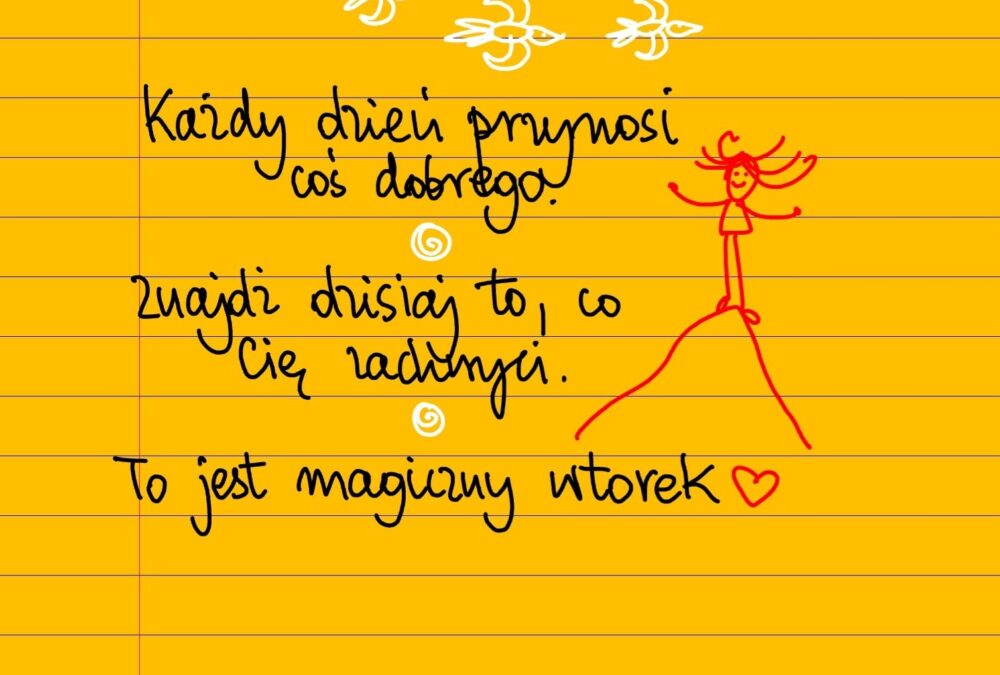 Każdy dzień przynosi
coś dobrego.
Znajdź dzisiaj to, co
Cię zachwyci.
To jest magiczny wtorek